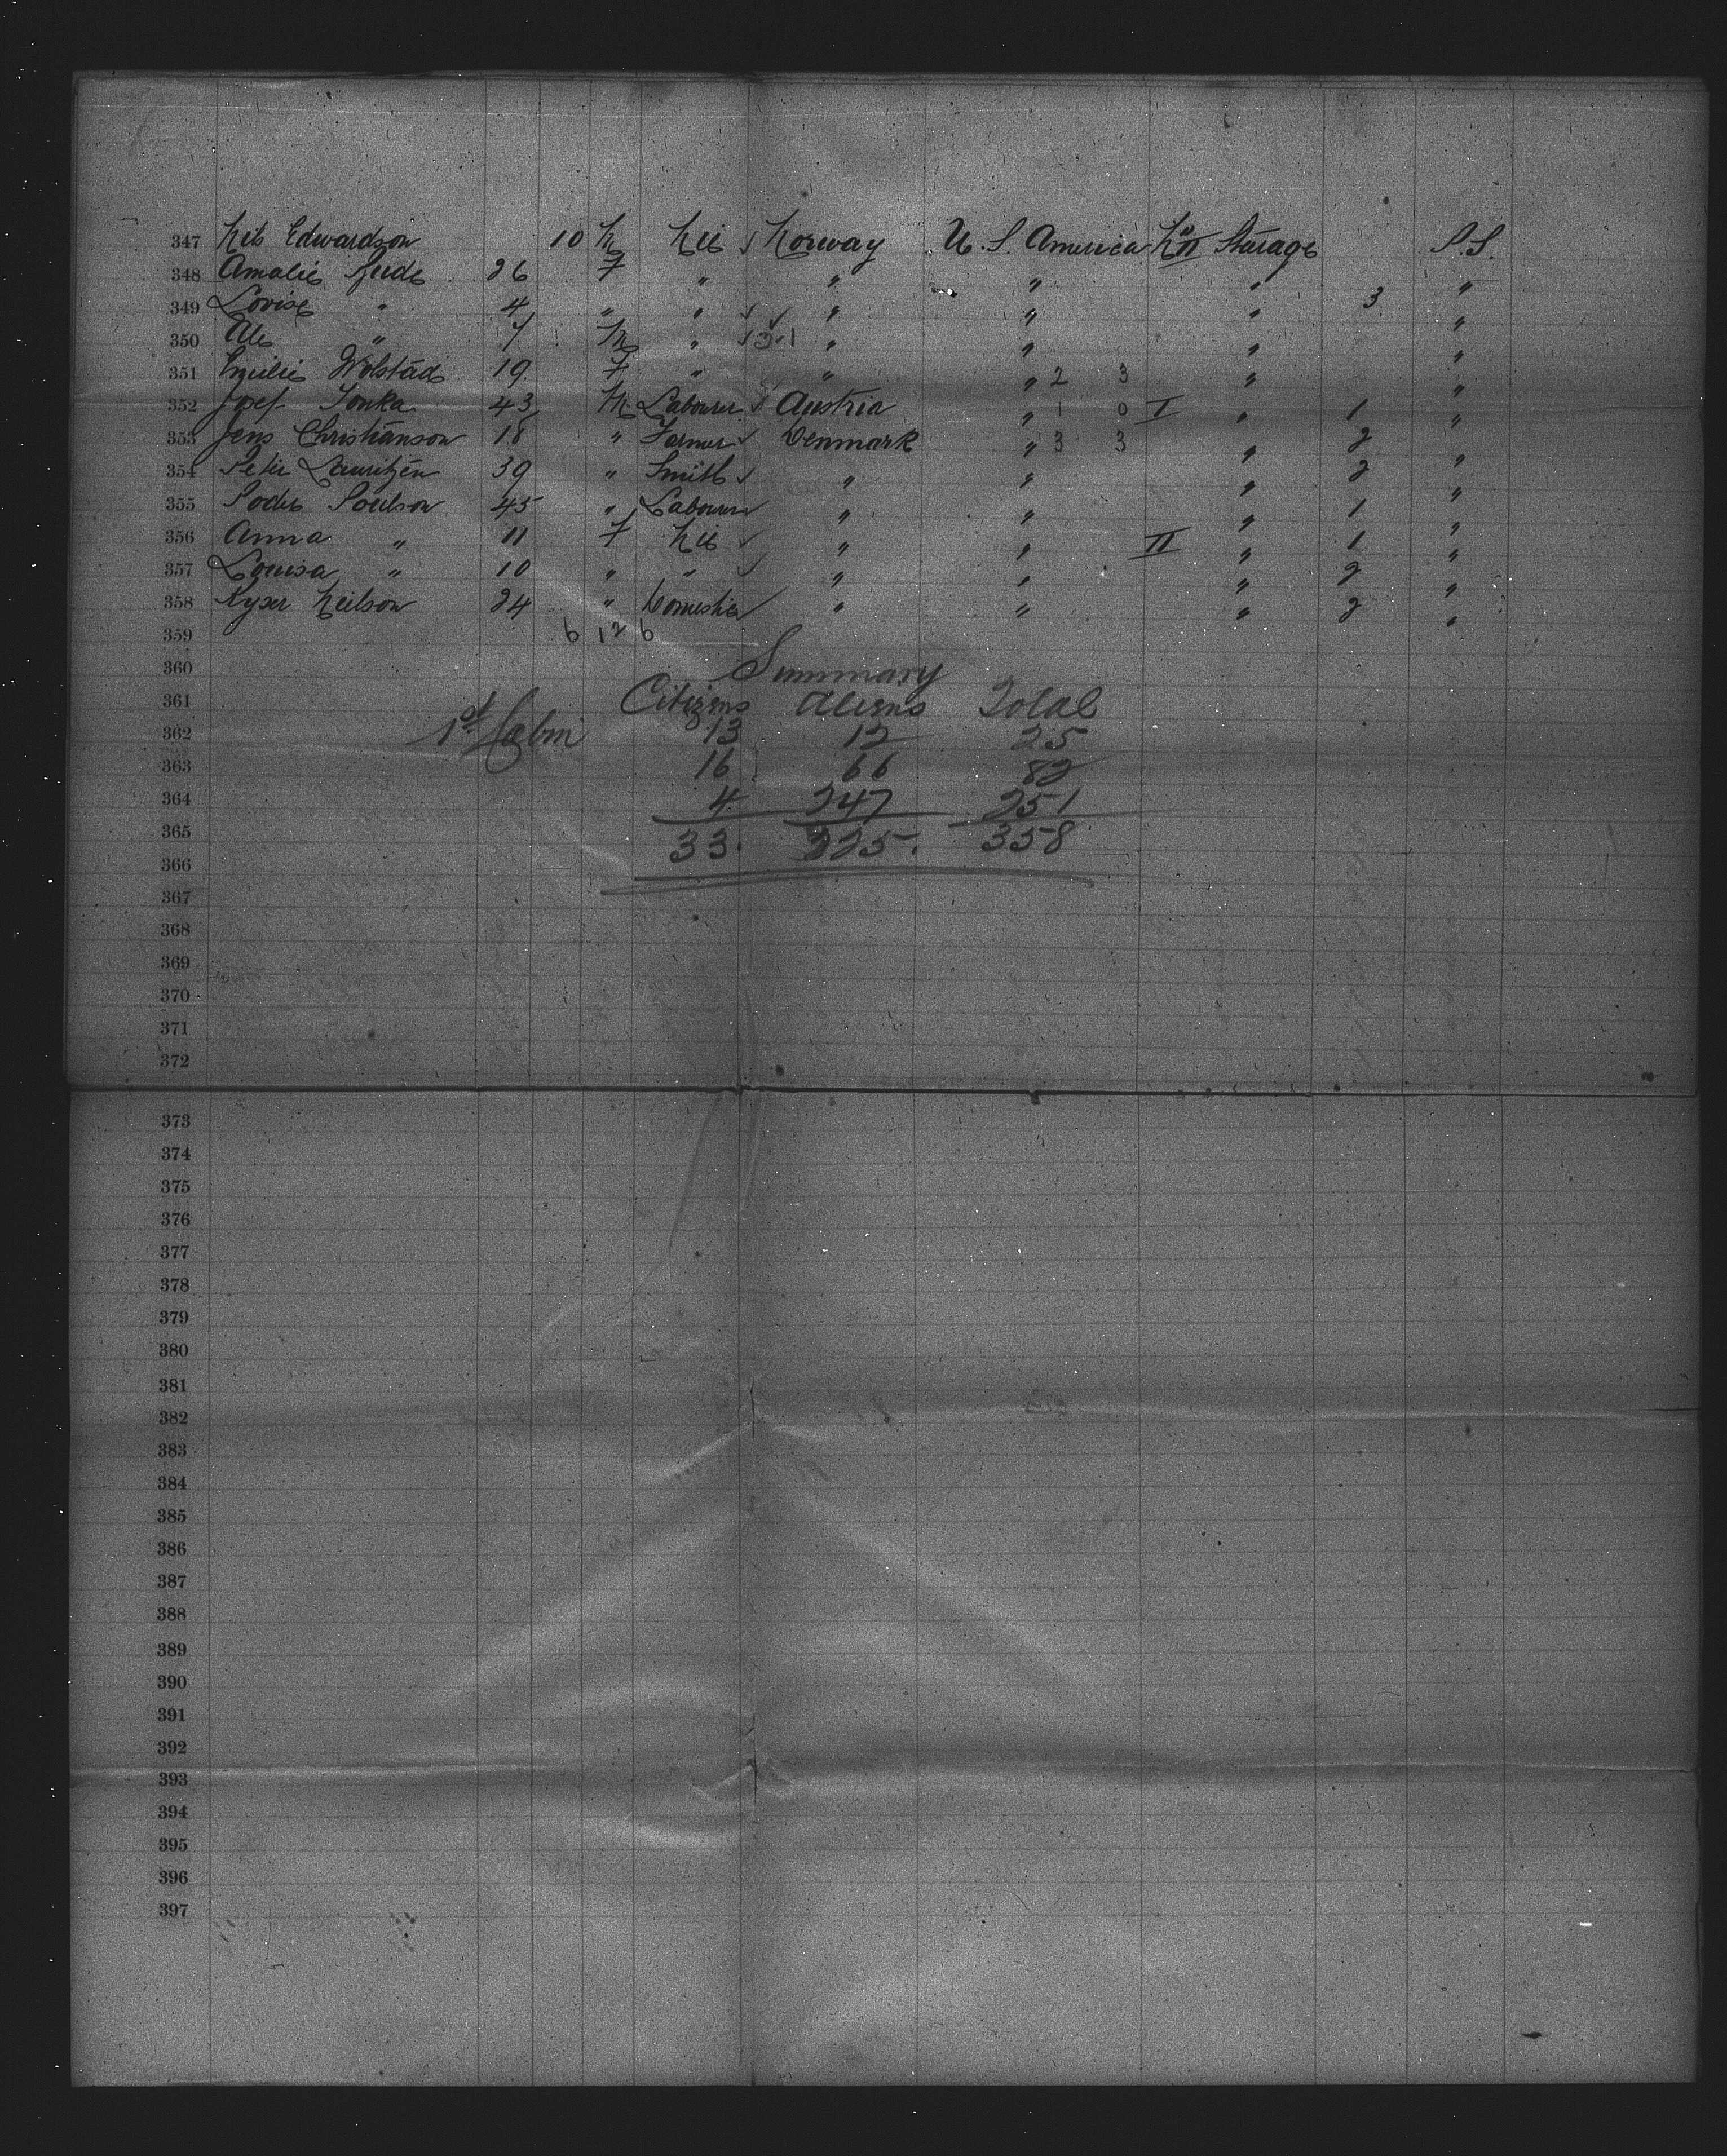 347 Nils Edwardson 10 M Nil ✓ Norway U. S. America No II Stürage S.S.
348 Amalie 26 F " " " " "
349 Lovise " 4 " " ✓ ✓ " " " 3 "
350 Ole " 7 M " " " " "
351 Emilie Wolstad 19 F " " " 2 3 " "
352 Josef Tonka 43 M Labourer ✓ Austria " 1 0 I " 1 "
353 Jens Christianson 18 " Farmer ✓ Denmark " 3 3 " 2 "
354 Peter Lauritzen 39 " Smith ✓ " " " 2 "
355 Poulson 45 " Labourer " " " 1 "
356 Anna " 11 F Nil ✓ " " II " 1 "
357 Louisa " 10 " " ✓ " " " 2 "
358 Neilson 24 " Domestic ✓ " " " 2 "
359 6 12 6
360 Summary
361 Citizens Aliens Total
362 1st Cabin 13 12 25
363 16 66 82
364 4 247 251
365 33. 325. 358
366
367
368
369
370
371
372
373
374
375
376
377
378
379
380
381
382
383
384
385
386
387
388
389
390
391
392
393
394
395
396
397